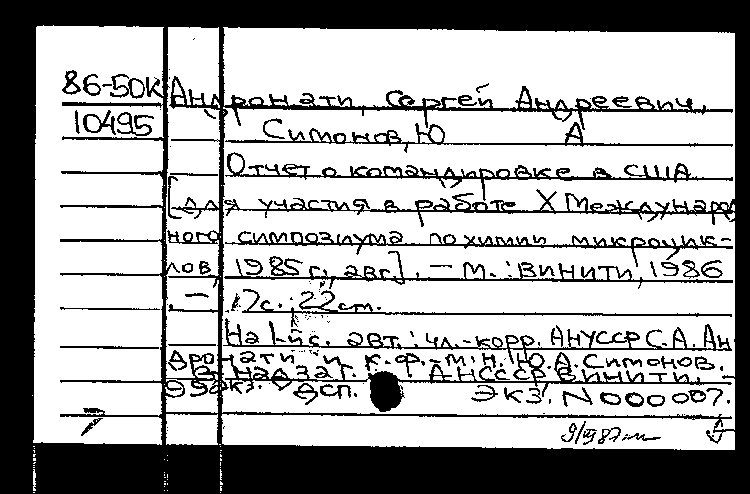 86-50К Андронати, Сергей Андреевич,
10495 Симонов, Ю А
Отчет о командировке в США
[для участия в работе X Международ
ного симпозиума по химии микроцик-
лов, 1985 г., авг]. — М. : ВИНИТИ, 1986
. — 17с.; 22 см.
На 1-й с. авт.: чл.-корр. АНУССР С.А. Ан
дронати и к.ф.-м.н. Ю.А. Симонов.
В надзаг. АНСССР. ВИНИТИ. -
99 экз. ДСП. ЭКЗ. N000007.